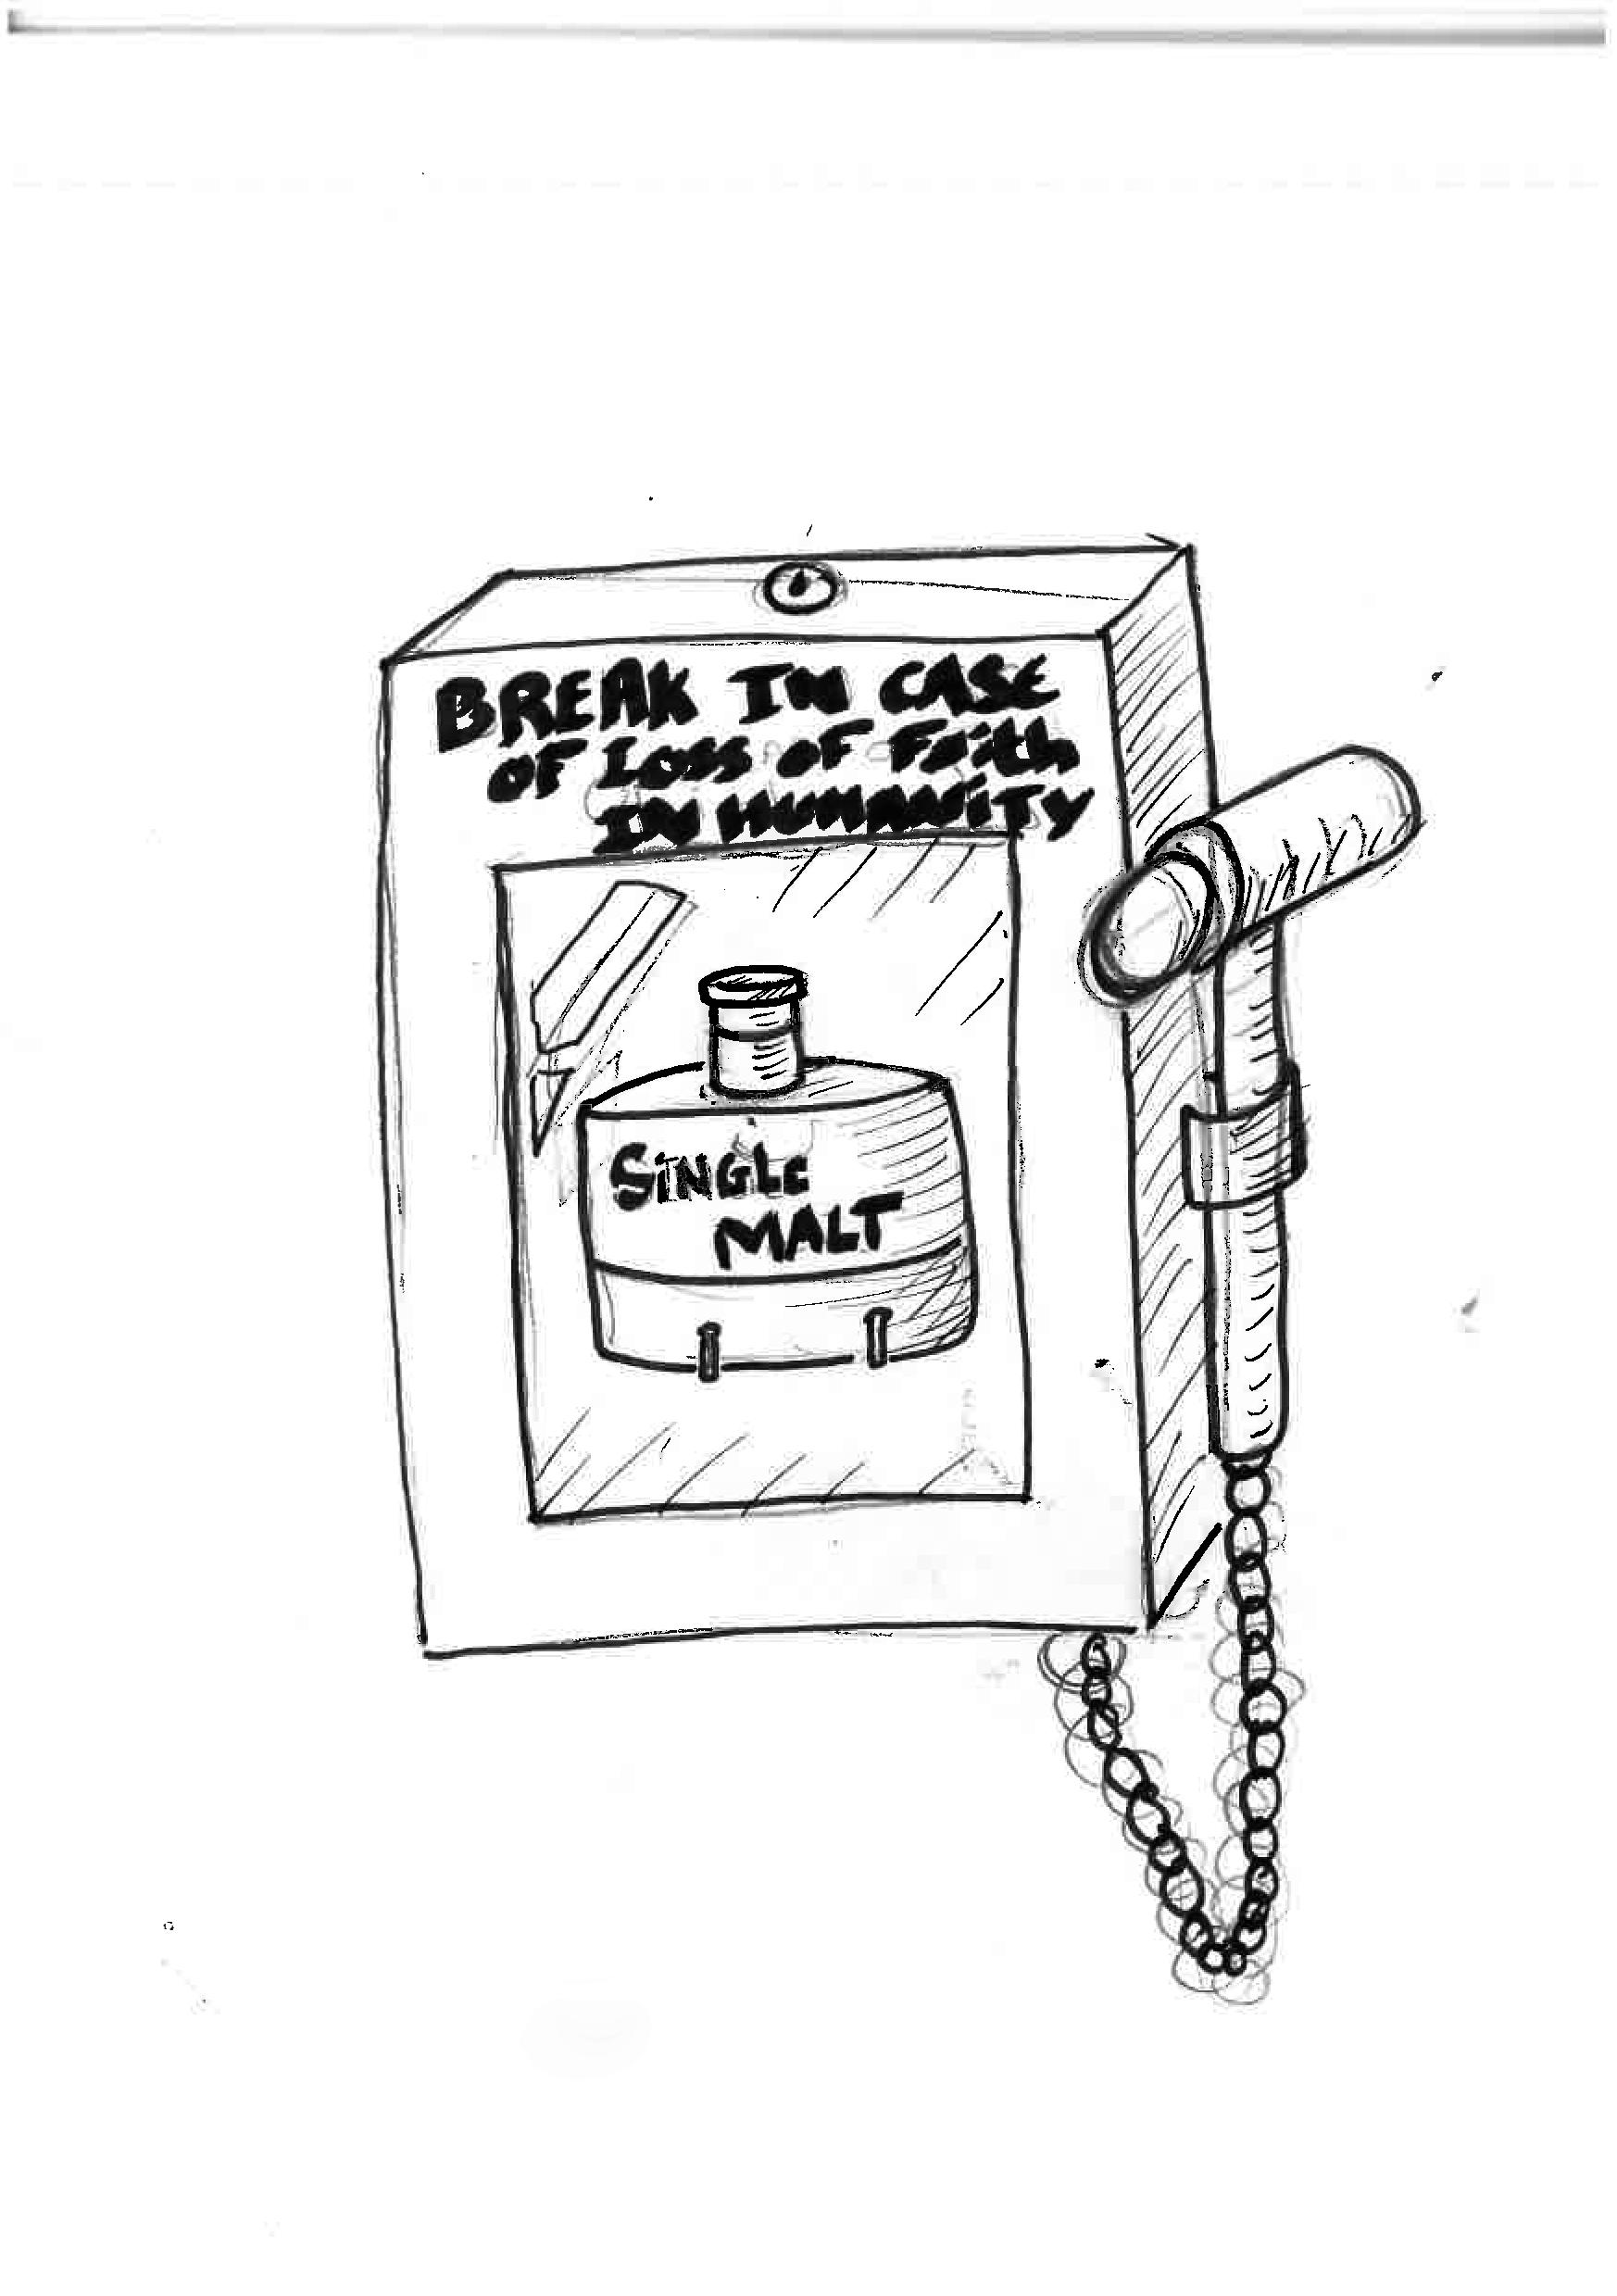 BREAK IN CASE
OF LOSS OF Faith
IN HUMANITY
SINGLE
MALT